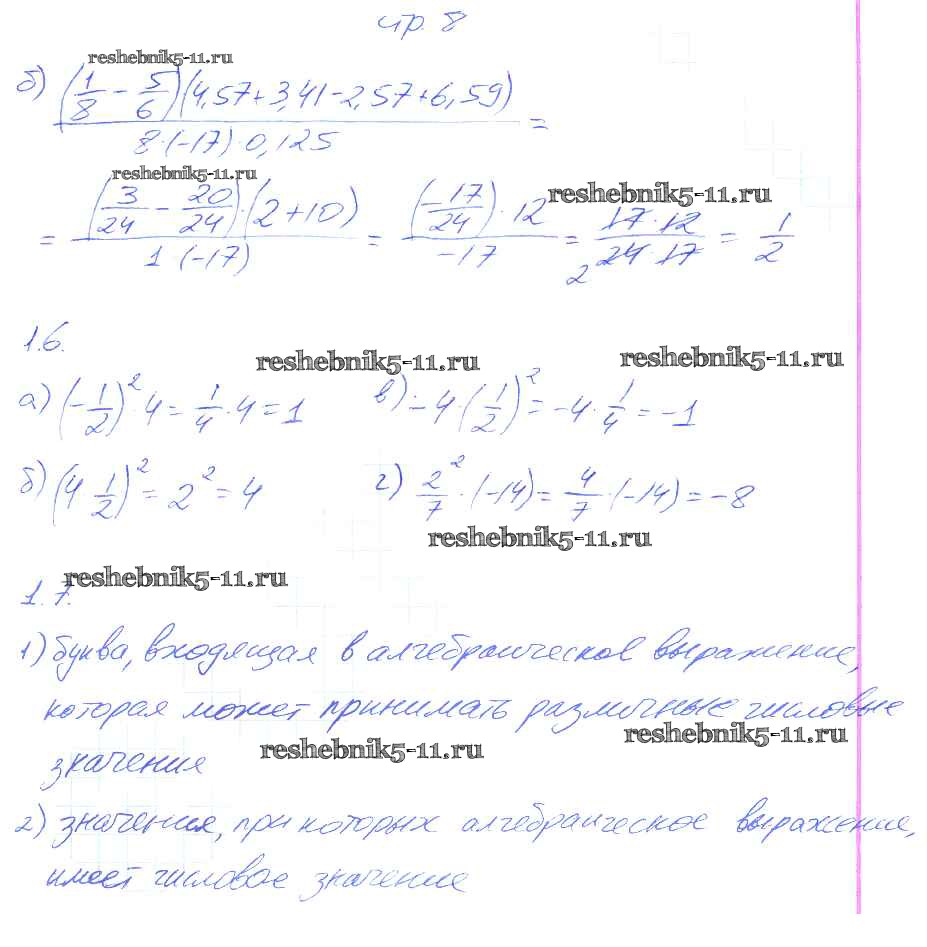 стр. 8
reshebnik5-11.ru
б) (1/8 − 5/6)(4,57+3,41−2,57+6,59) / 8·(−17)·0,125 =
reshebnik5-11.ru
reshebnik5-11.ru
= (3/24 − 20/24)·(2+10) / 1·(−17) = (−17/24)·12 / −17 = 17·12 / 2 24·17 = 1/2
1.6.
reshebnik5-11.ru
reshebnik5-11.ru
а) (−1/2)²·4 = 1/4·4 = 1 в) −4·(1/2)² = −4·1/4 = −1
б) (4 1/2)² = 2² = 4 г) 2²/7·(−14) = 4/7·(−14) = −8
reshebnik5-11.ru
reshebnik5-11.ru
1.7.
1) буква, входящая в алгебраическое выражение,
которая может принимать различные числовые
reshebnik5-11.ru
reshebnik5-11.ru
значения
2) значения, при которых алгебраическое выражение,
имеет числовое значение